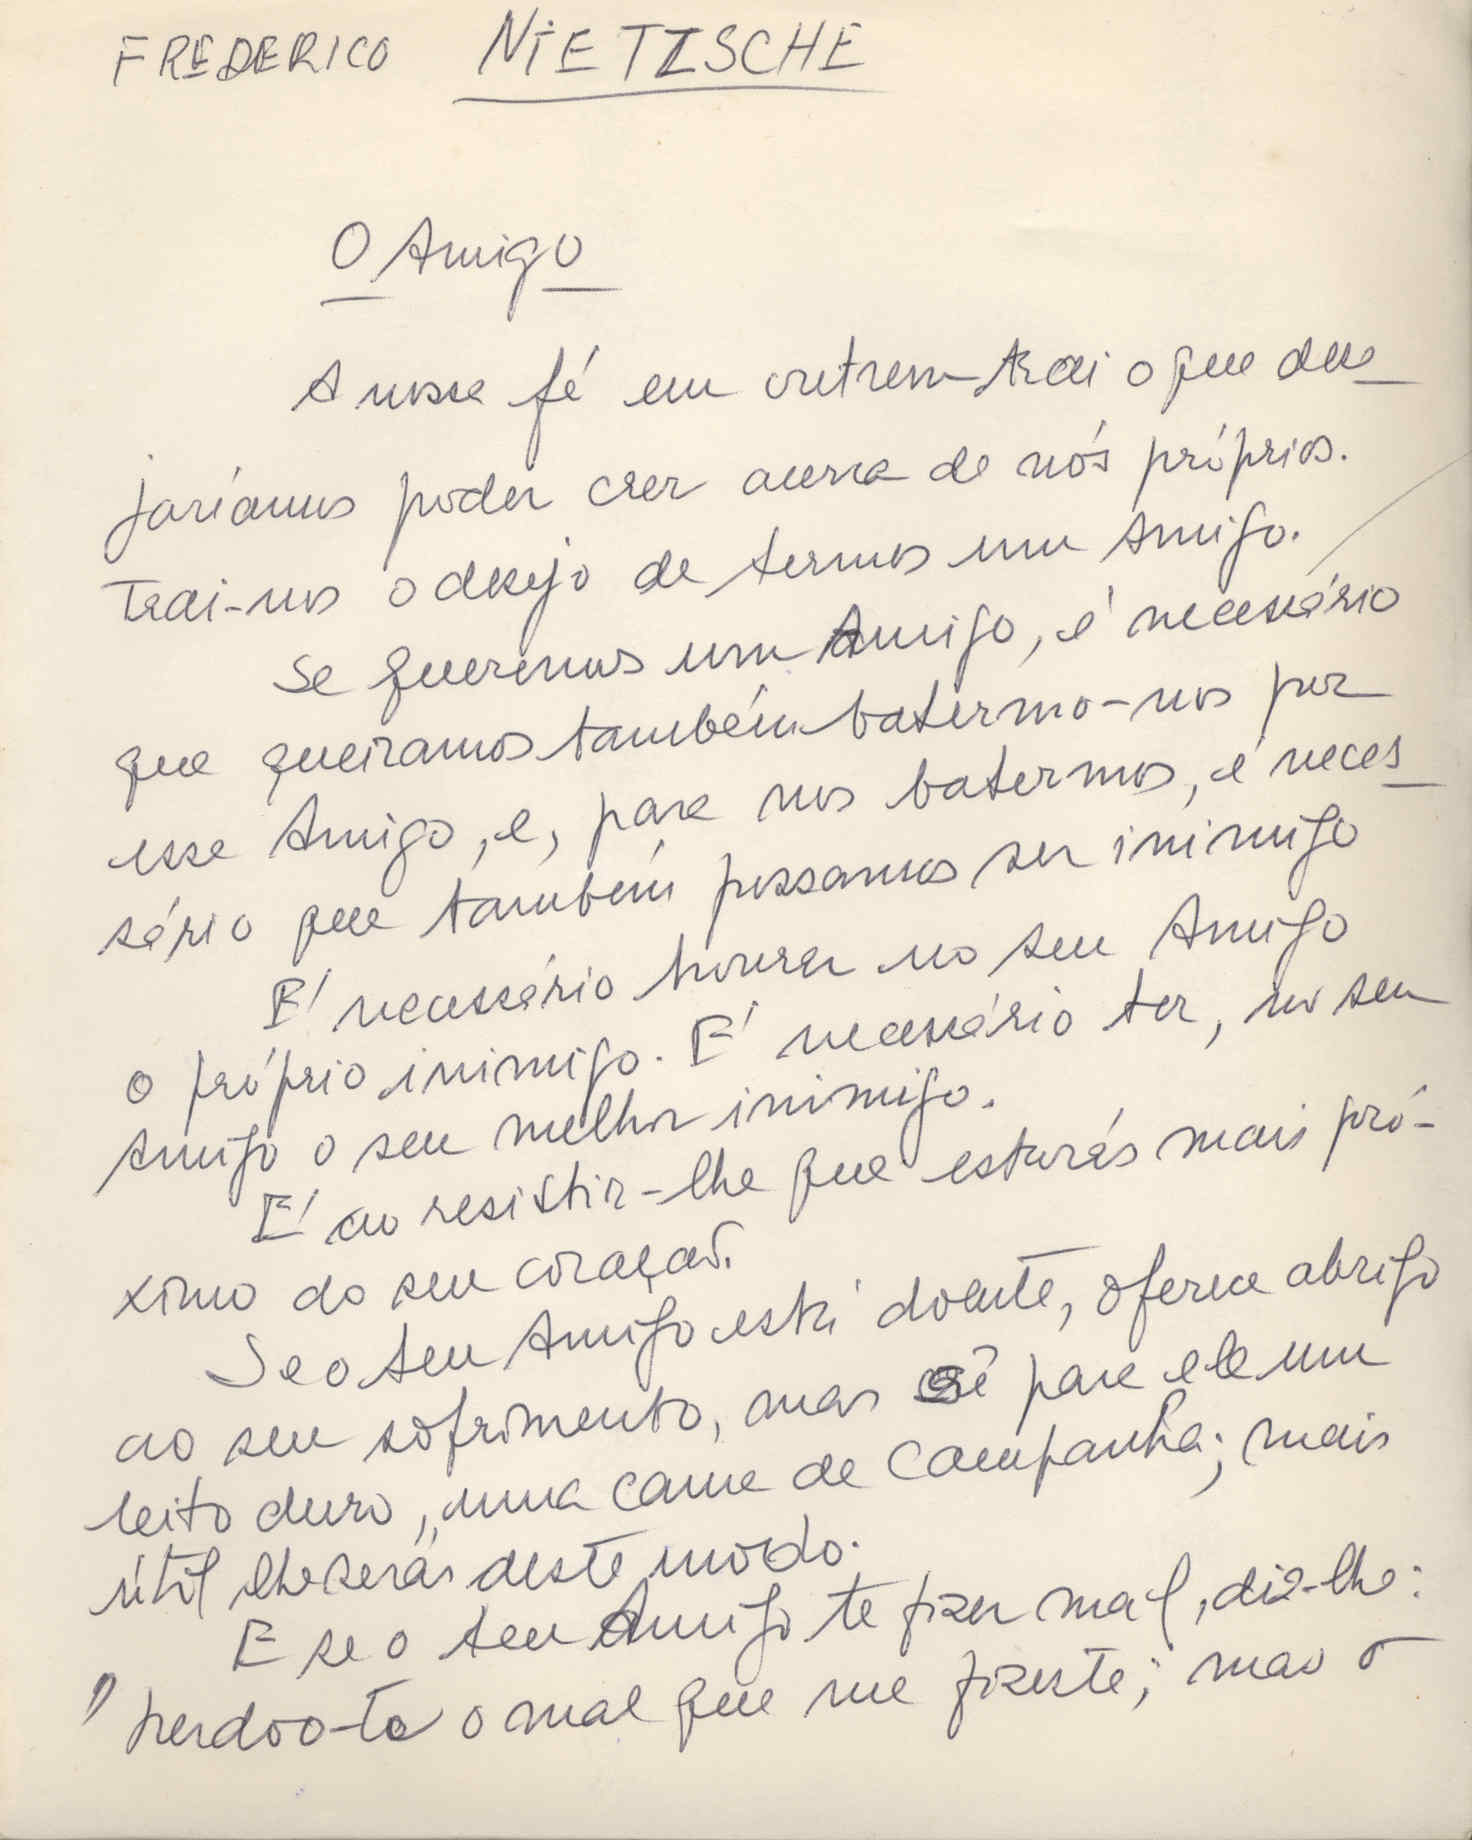 FREDERICO NIETZSCHE
O Amigo
A nossa fé em outrem trai o que dese_
jaríamos poder crer acerca de nós próprios.
Trai-nos o desejo de termos um Amigo.
Se queremos um Amigo, é necessário
que queiramos também batermo-nos por
esse Amigo, e, para nos batermos, é neces_
sário que também possamos ser inimigo
É necessário honrar no seu Amigo
o próprio inimigo. É necessário ter, no seu
Amigo o seu melhor inimigo.
É ao resistir-lhe que estarás mais pró-
ximo do seu coração.
Se o teu Amigo está doente, oferece abrigo
ao seu sofrimento, mas sê para ele um
leito duro, uma cama de campanha; mais
útil lhe serás deste modo.
E se o teu Amigo te fizer mal, diz-lhe:
"perdoo-te o mal que me fizeste; mas o